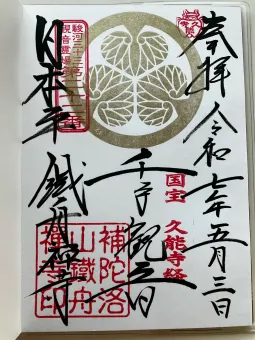 奉拝
令和七年五月三日
国宝 久能寺経
千手観音
駿河三十三箇所
観音霊場第二十二番
日本平 鐵舟禅寺
補陀洛
山鐵舟
禅寺印